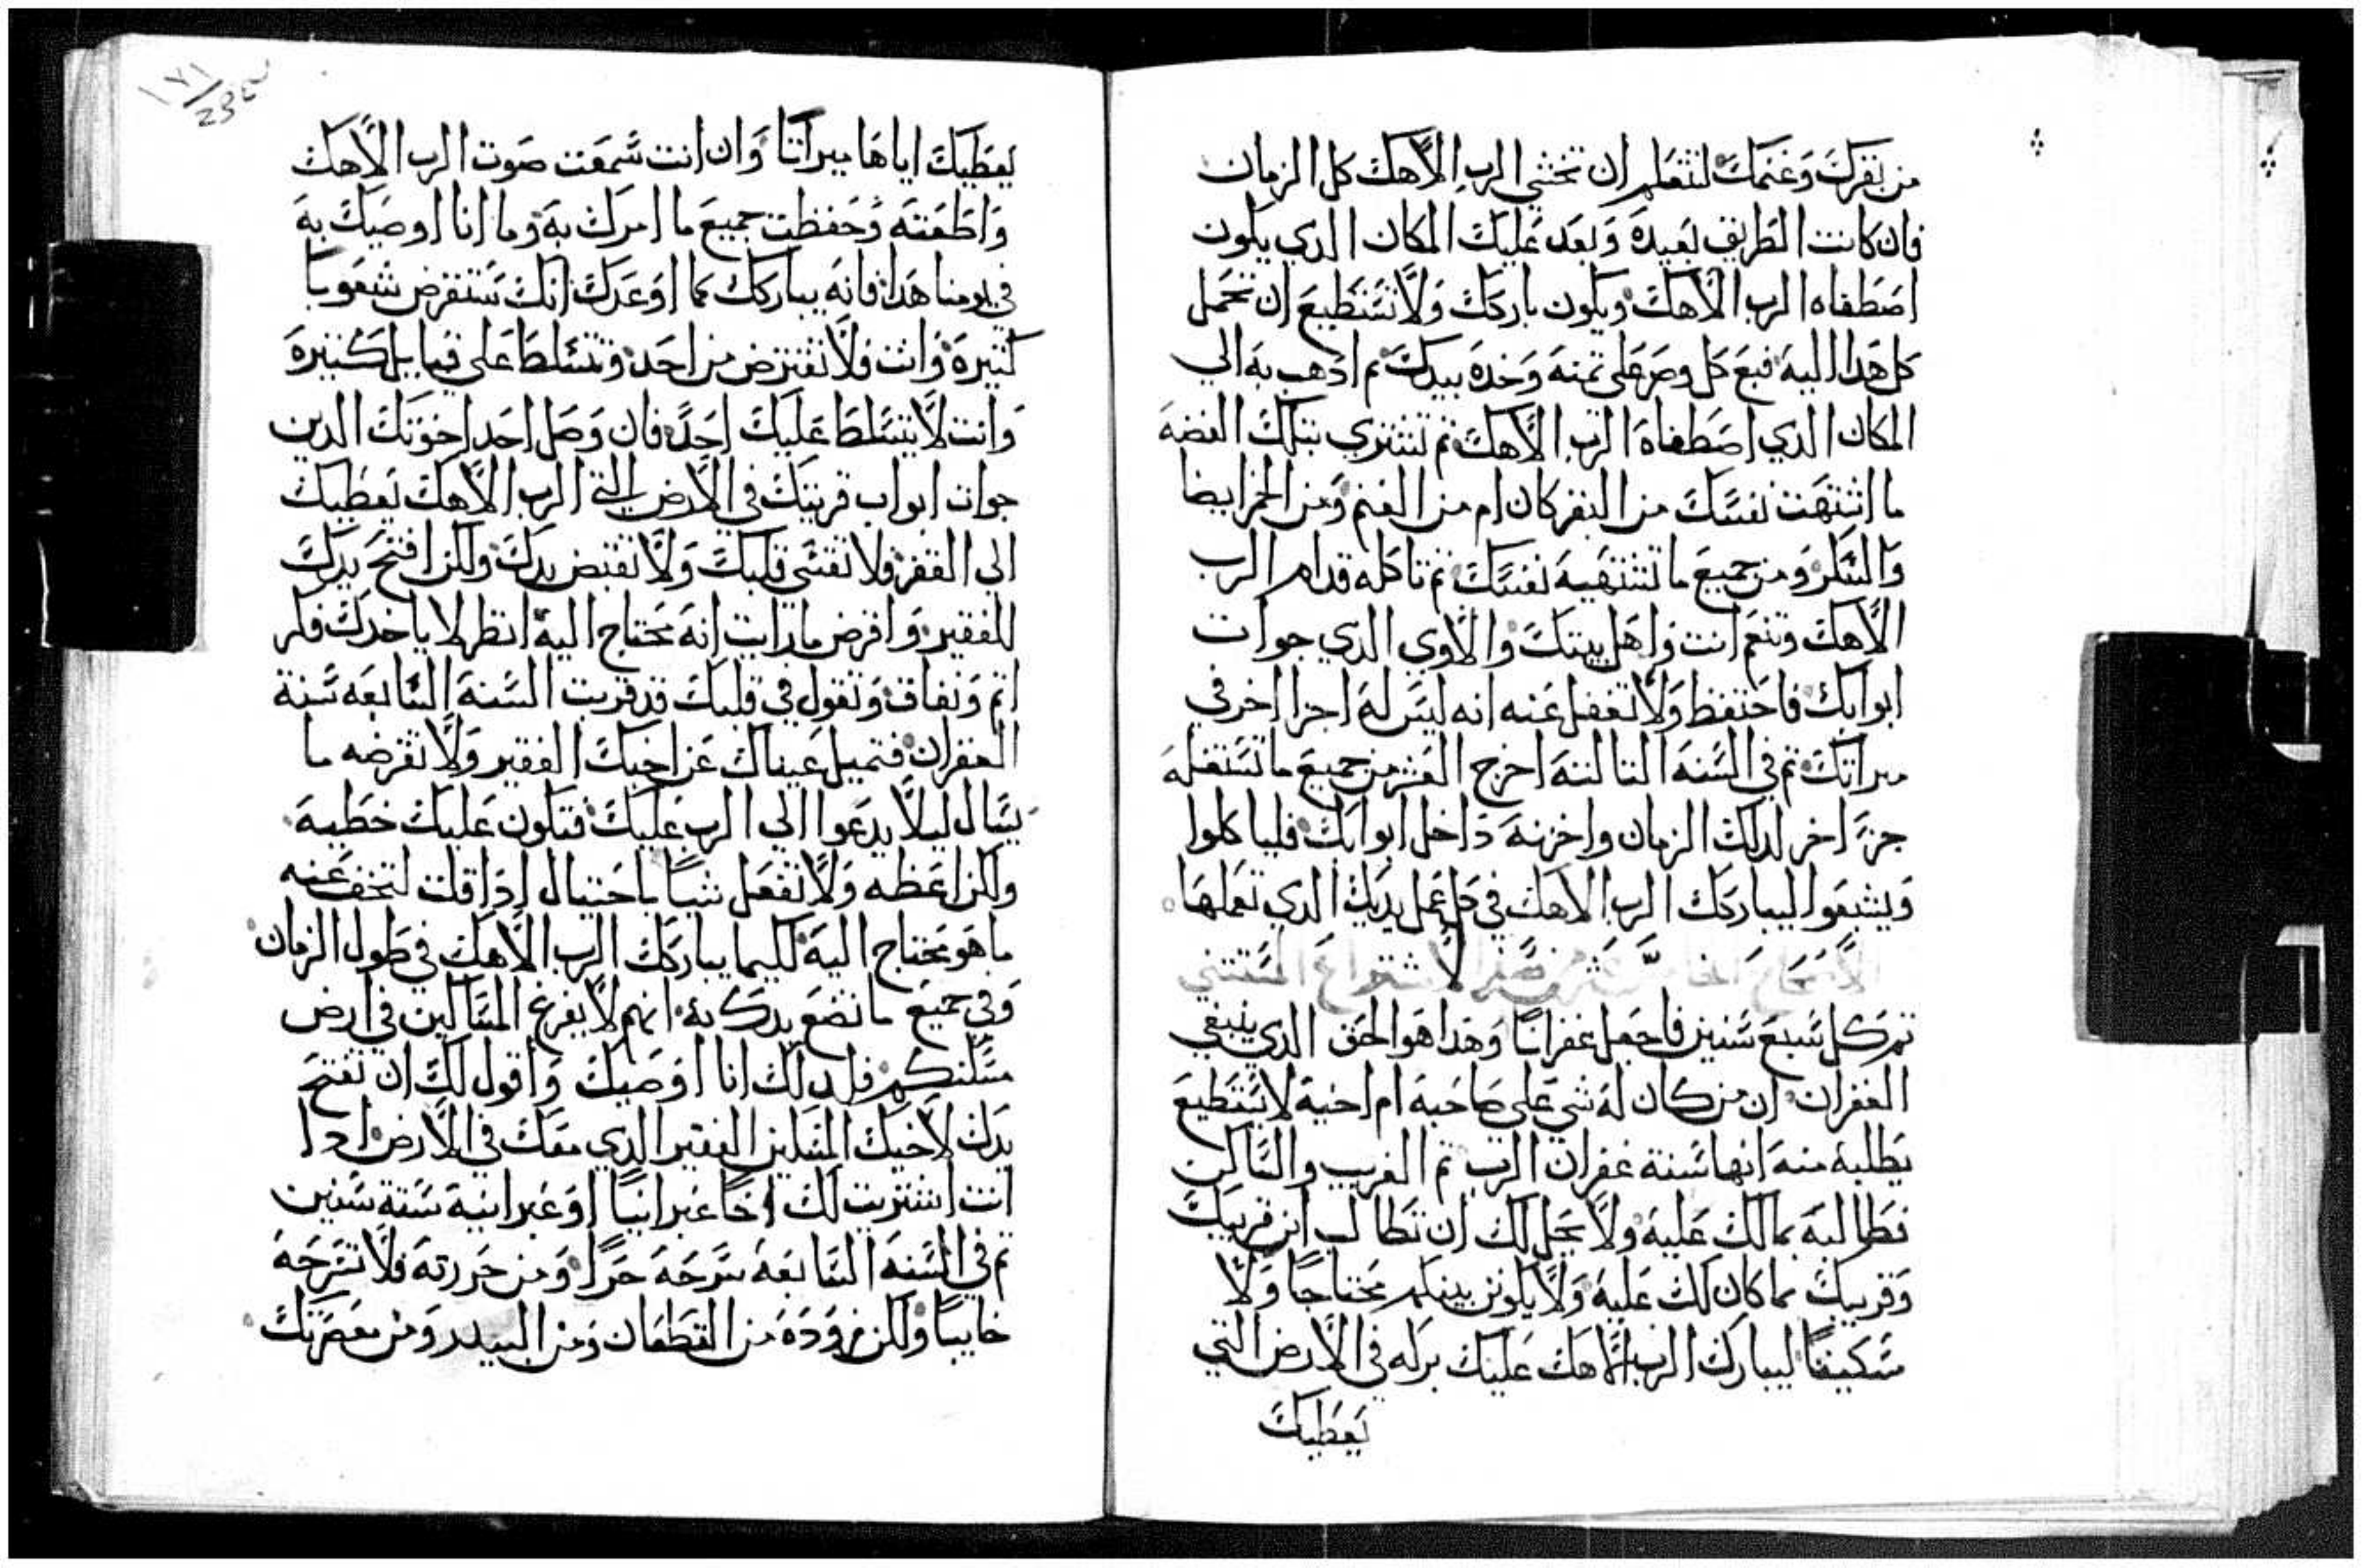 من بقرك وغنمك لتتعلم ان تخشي الرب الاهك كل الزمان
فان كانت الطريق بعيدة وبعد عليك المكان الدي يكون
اصطفاه الرب الاهك ويكون باركك ولا تستطيع ان تحمل
كل هدا اليه فبع كل وصر على تمنه وخده بيدك تم ادهب به الي
المكان الدي اصطفاه الرب الاهك تم تشتري بتلك الفضه
ما اشتهت نفسك من البقر كان ام من الغنم ومن الخمر ايضا
والسكر ومن جميع ما تشتهيه نفسك تم تاكله قدام الرب
الاهك وتنعم انت واهل بيتك والاوي الدي جوات
ابوابك فاحتفظ ولا تغفل عنه انه ليس له اجزا اخر في
ميراتك تم في السنه التالته اخرج العشر من جميع ما تستغله
جزء اخر لدلك الزمان واخزنه داخل ابوابك فلياكلوا
ويشبعوا ليباركك الرب الاهك في كل عمل يديك الدي تعملها
الاصحاح الخامس عشر من سفر الاشتراع
تم كل سبع سنين فاجعل غفرانا وهدا هو الحق الدي ينبغي
الغفران ان من كان له شي على صاحبه ام اخيه لا يستطيع
يطلبه منه انها سنة غفران الرب تم الغريب والساكن
فطالبه بمالك عليه ولا يحل لك ان تطالب ابن قريبك
وقريبك بما كان لك عليه ولا يكونن بينكم محتاجا ولا
مسكينا ليبارك الرب الاهك عليك بركه في الارض التي
يعطيك
١٧١
يعطيك اياها ميراتا وان انت سمعت صوت الرب الاهك
واطعته وحفظت جميع ما امرك به وما انا اوصيك به
في يومنا هدا فانه يباركك كما اوعدك انك ستقرض شعوبا
كتيرة وانت فلا تقترض من احد وتتسلط على قبايل كتيرة
وانت لا يتسلط عليك احد فان وصل احد اخوتك الدين
جوات ابواب قريتك في الارض التي الرب الاهك يعطيك
الى الفقر فلا تقسى قلبك ولا تقبض يدك ولكن افتح يدك
للفقير واقرض مارايت انه محتاج اليه انظر لا ياخدك فكر
اتم ونفاق وتقول في قلبك قد قربت السنه السابعه سنة
الغفران فتميل عيناك عن اخيك الفقير ولا تقرضه ما
يسال ليلا يدعوا الي الرب عليك فتكون عليك خطيه
ولكن اعطه ولا تفعل شيا باحتيال ادا قلت لتخف عنه
ما هو محتاج اليه لكيما يباركك الرب الاهك في طول الزمان
وفي جميع ما تضع يدك به انهم لا يفرغ المساكين في ارض
مسكنكم فلدلك انا اوصيك واقول لك ان تفتح
يدك لاخيك المسكين الفقير الدي معك في الارض ادا
انت اشتريت لك اخا عبرانيا او عبرانية ستة سنين
تم في السنه السابعه سرحه حرا ومن حررته فلا تسرحه
خايبا ولكن زوده من القطعان ومن البيدر ومن معصرتك